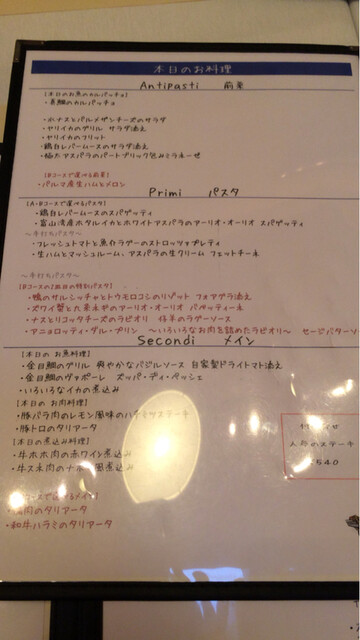 本日のお料理
Antipasti 前菜
【本日のお魚のカルパッチョ】
・真鯛のカルパッチョ
・水ナスとパルメザンチーズのサラダ
・ヤリイカのグリル サラダ添え
・ヤリイカのフリット
・鶏白レバームースのサラダ添え
・極太アスパラのパートブリック包みミラネーゼ
【Bコースで選べる前菜】
・パルマ産生ハムとメロン
Primi パスタ
【A・Bコースで選べるパスタ】
・鶏白レバームースのスパゲッティ
・富山湾産ホタルイカとホワイトアスパラのアーリオ・オーリオ スパゲッティ
～手打ちパスタ～
・フレッシュトマトと魚介ラグーのストロッツァプレティ
・生ハムとマッシュルーム、アスパラの生クリーム フェットチーネ
～手打ちパスタ～
【Bコースの2皿目の特別パスタ】
・鴨のサルシッチャとトウモロコシのリゾット フォアグラ添え
・ズワイ蟹と九条ネギのアーリオ・オーリオ パペッティーネ
・ナスとリコッタチーズのラビオリ 仔羊のラグーソース
・アニョロッティ・ダル・プリン ～いろいろなお肉を詰めたラビオリ～ セージバターソー
Secondi メイン
【本日の お魚料理】
・金目鯛のグリル 爽やかなバジルソース 自家製ドライトマト添え
・金目鯛のヴァポーレ ズッパ・ディ・ペッシェ
・いろいろなイカの煮込み
【本日の お肉料理】
・豚バラ肉のレモン風味のハチミツステーキ
・豚トロのタリアータ
【本日の煮込み料理】
・牛ホホ肉の赤ワイン煮込み
・牛スネ肉のナポリ風煮込み
コースで選べるメイン
肉のタリアータ
・和牛ハラミのタリアータ
せ
のステーキ
540